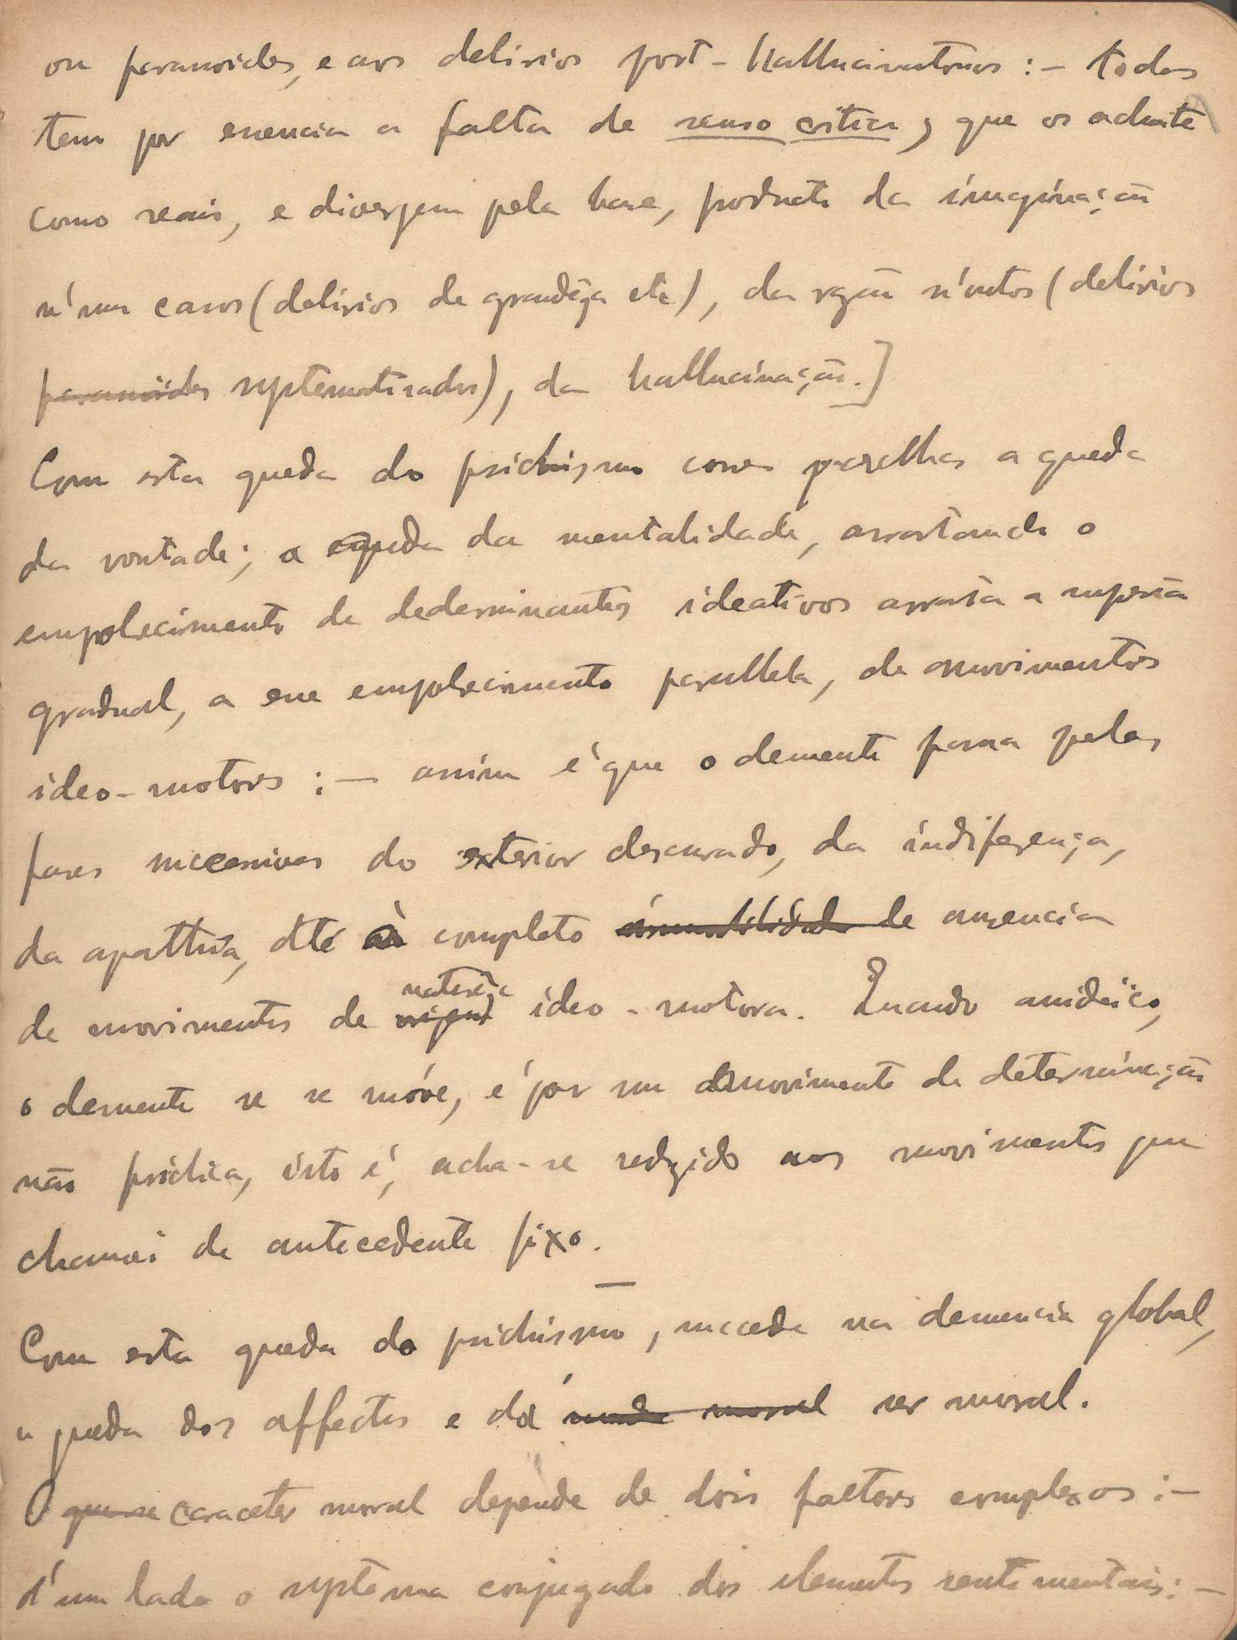 ou paranoides, e aos delirios post-hallucinatorios :– todos
tem por essencia a falta de senso critico, que os admite
como reais, e divergem pela base, producto da imaginação
n'uns casos (delirios de grandeza etc), da razão n'outros (delirios
paranoides systematisados), da hallucinação.]
Com esta queda do psichismo corre parelhas a queda
da vontade; a queda da mentalidade, arrastando o
empobrecimento de dederminantes ideativos arrasta a
gradual, a seu empobrecimento parallela, de movimentos
ideo-motores :– assim é que o demente passa pelas
fases successivas do exterior descurado, da indiferença,
da apathia, até à completa immobilidade de ausencia
de movimentos de origem natureza ideo-motora. Quando anideico,
o demente se se móve, é por um movimento de determinação
não psichica, isto é, acha-se reduzido aos movimentos que
chamei de antecedente fixo.
—
Com esta queda do psichismo, succede na demencia global,
a queda dos affectos e do moral ser moral.
O que se caracter moral depende de dois factores complexos :–
d'um lado o systema conjugado dos elementos sentimentais :–